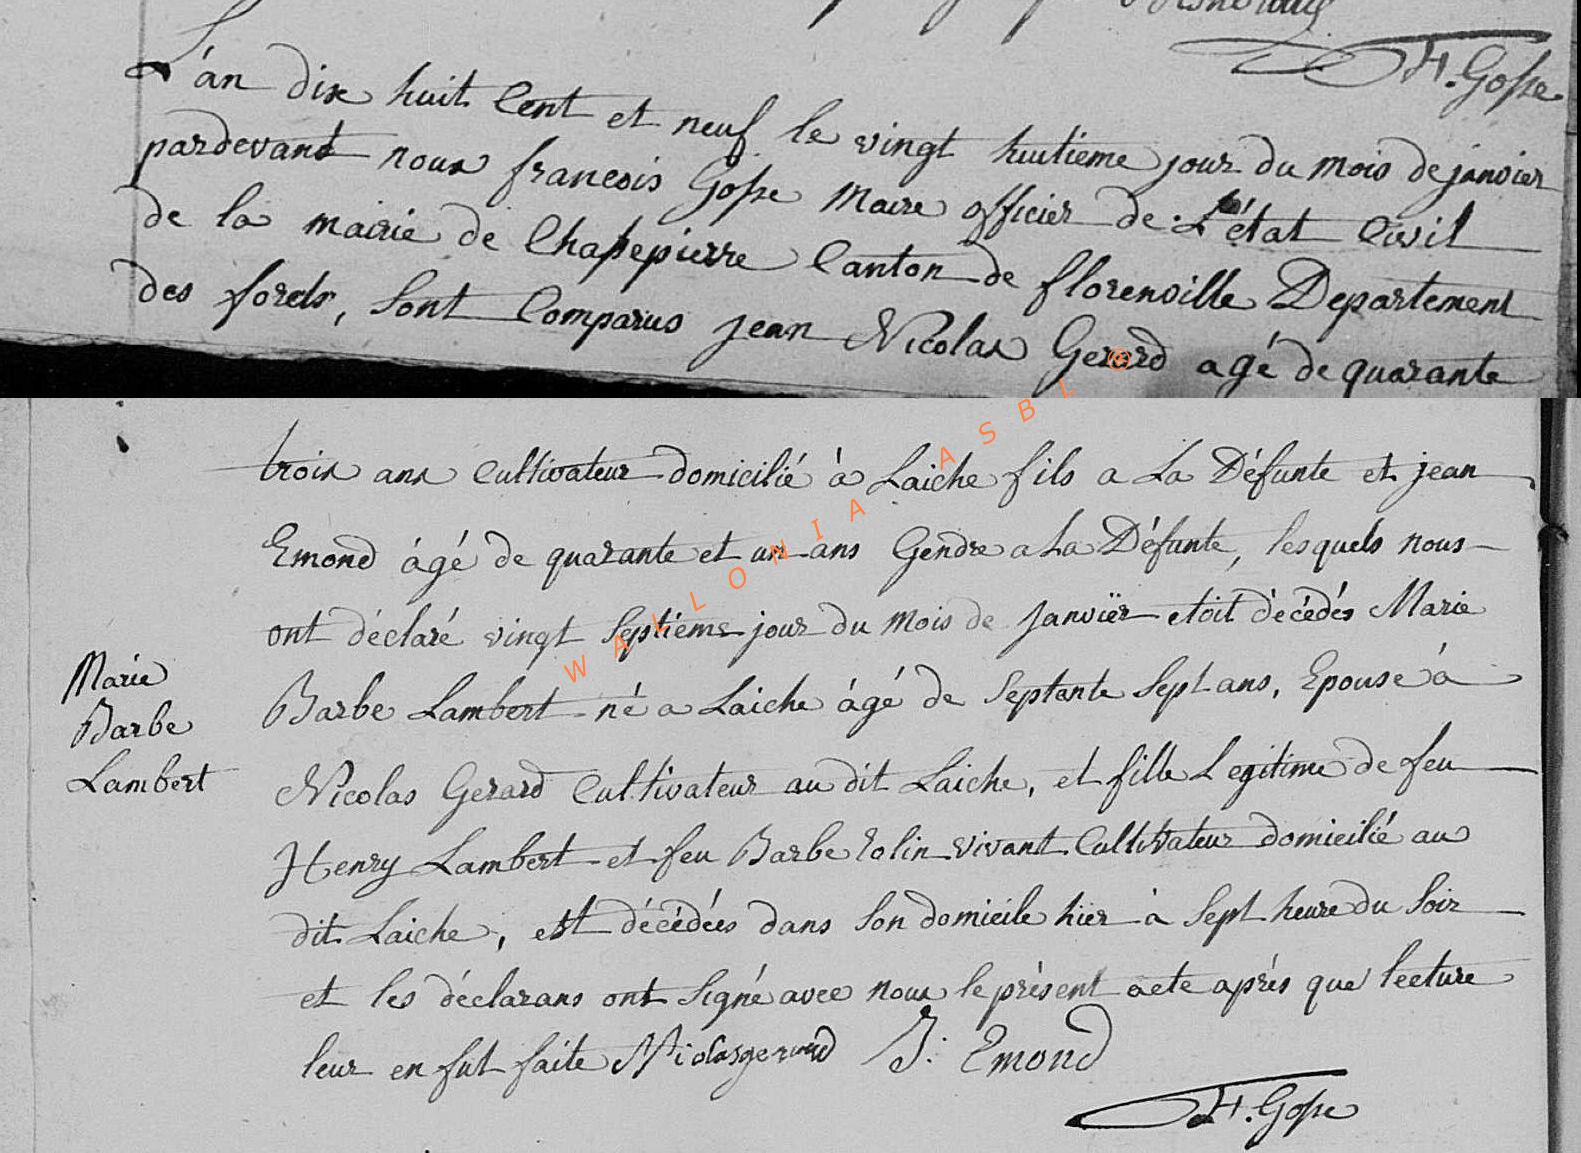 F. Gosse
L'an dix huit Cent et neuf le vingt huitieme jour du mois de janvier
pardevant nous francois Gosse Maire officier de L'état Civil
de la mairie de Chassepierre Canton de florenville Departement
des forets, Sont Comparus jean Nicolas Gerard agé de quarante
trois ans Cultivateur domicilié à Laiche fils a La Défunte et jean
Emond ágé de quarante et un ans Gendre a La Défunte, lesquels nous
ont déclaré vingt Septieme jour du mois de Janviër etoit décédés Marie
Marie Barbe Lambert
Barbe Lambert né a Laiche ágé de Septante Sept ans, Epouse à
Nicolas Gerard Cultivateur au dit Laiche, et fille Legitime de feu
Henry Lambert et feu Barbe Rolin vivant Cultivateur domicilié au
dit Laiche, est décédées dans Son domicile hier à Sept heure du Soir
et les déclarans ont Signé avec nous le présent acte aprés que lecture
leur en fut faite Nicolas gerard J: Emond
F. Gosse
WALLONIA ASBL ©